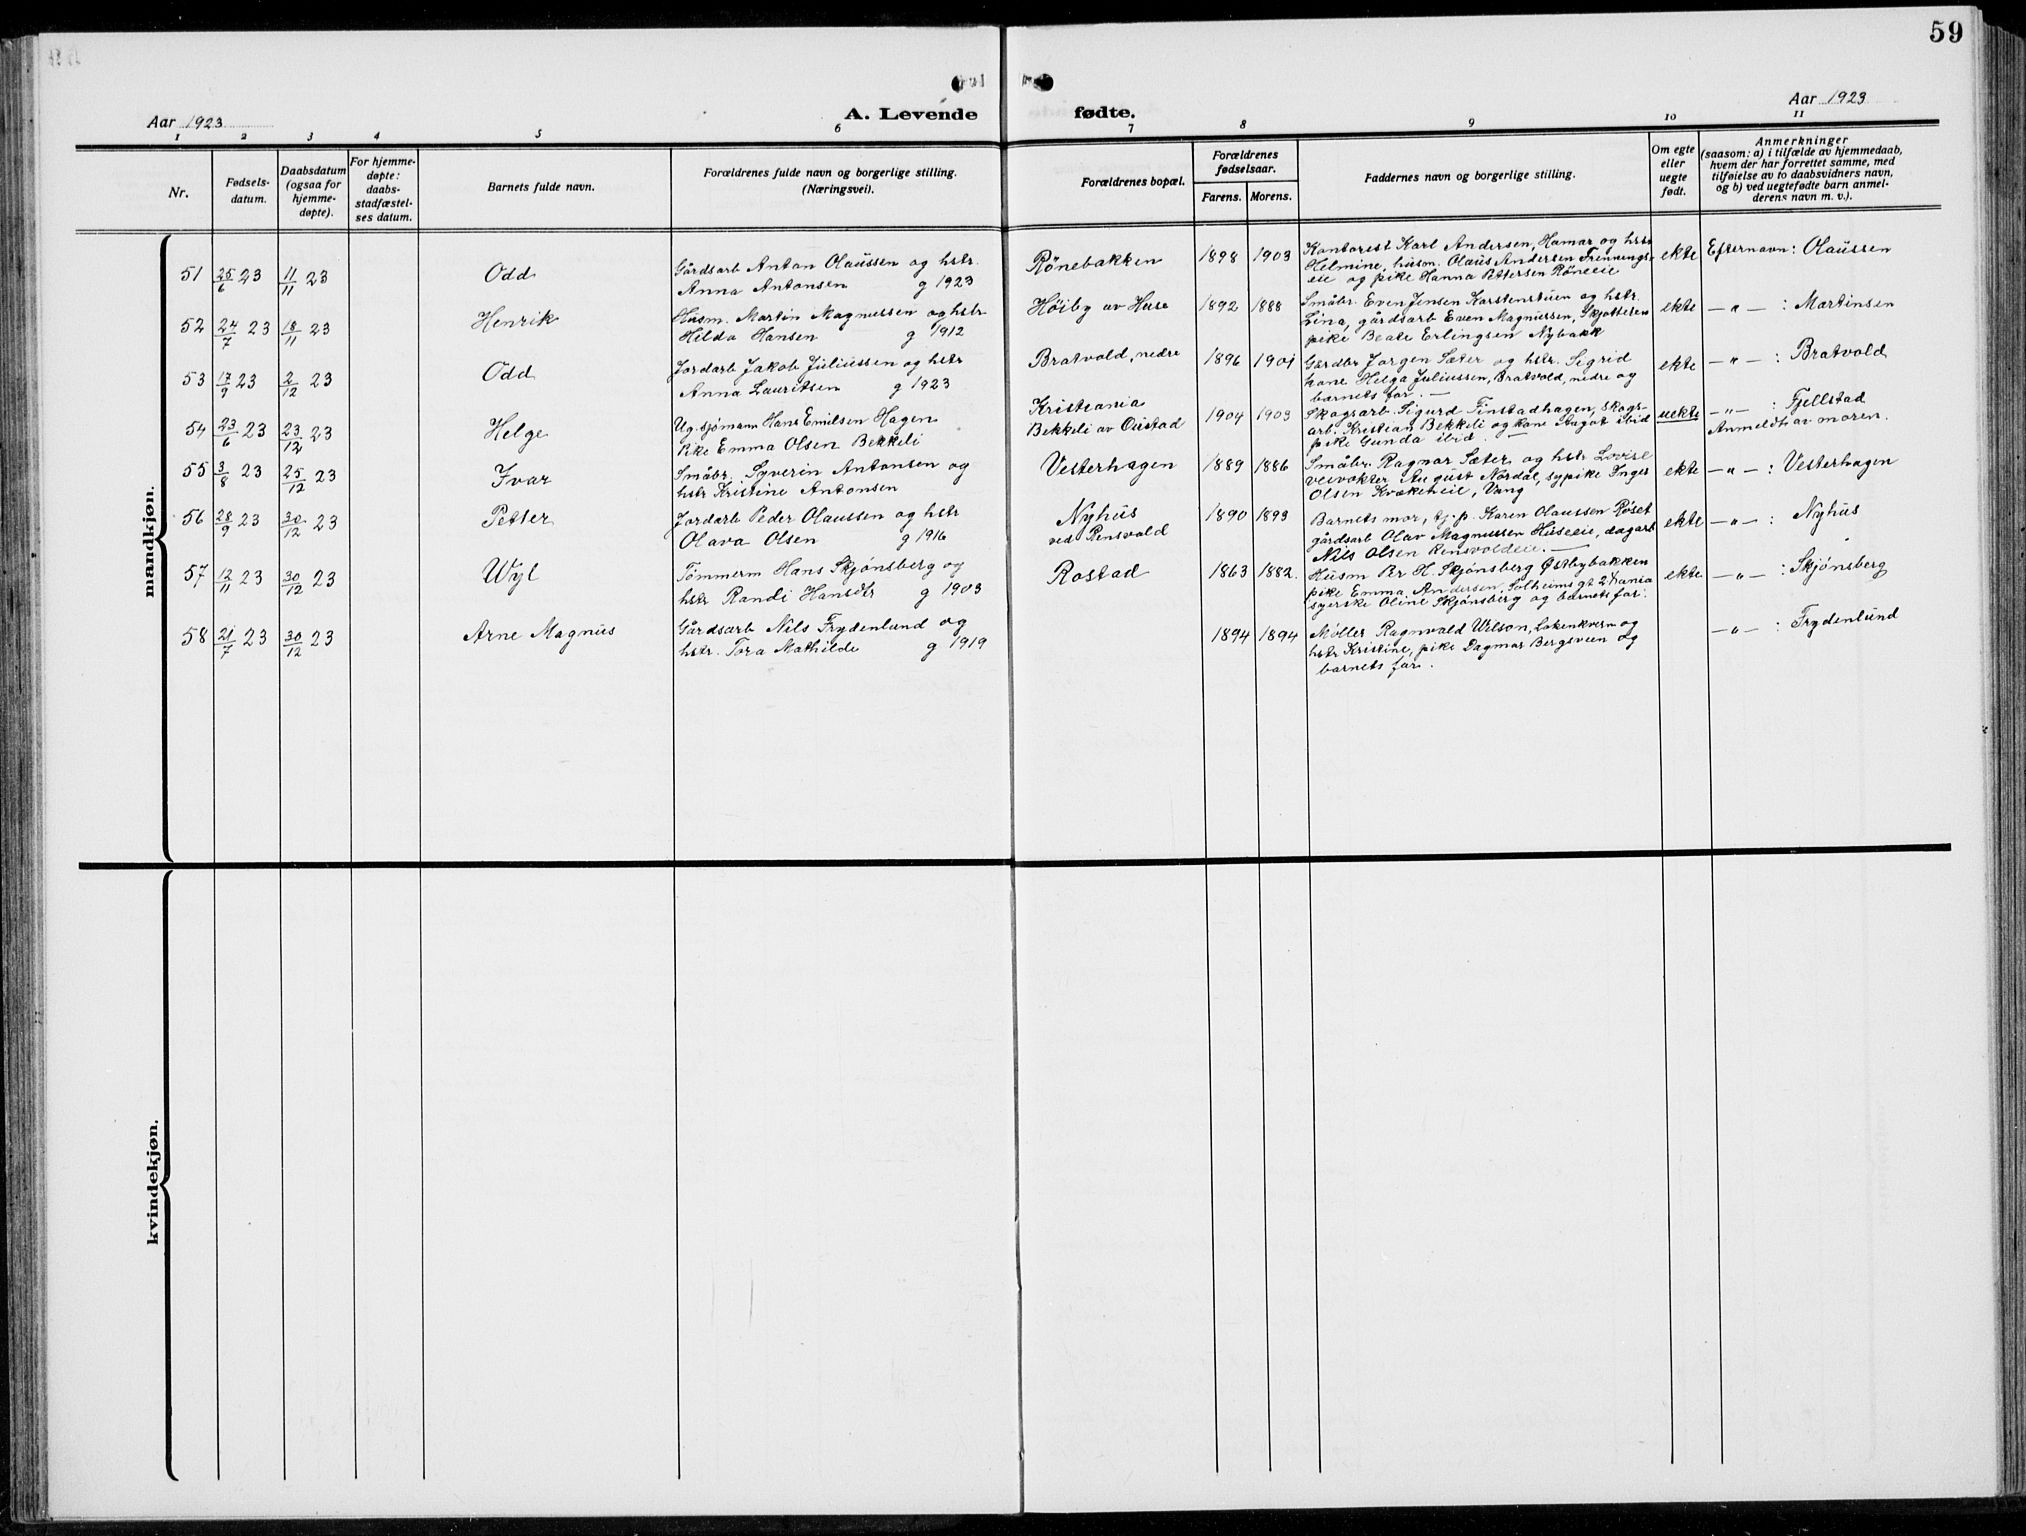 59
Aar 1923
A. Levende fødte.
Aar 1923
1 2 3 4 5 6 7 8 9 10 11
Nr.
Fødsels-
datum.
Daabsdatum
(ogsaa for
hjemme-
døpte).
For hjemme-
døpte:
daabs-
stadfæstel-
ses datum.
Barnets fulde navn.
Forældrenes fulde navn og borgerlige stilling.
(Næringsvei).
Forældrenes bopæl.
Forældrenes
fødselsaar.
Farens. Morens.
Faddernes navn og borgerlige stilling.
Om egte
eller
uegte
født.
Anmerkninger
(saasom: a) i tilfælde av hjemmedaab,
hvem der har forrettet samme, med
tilføielse av to daabsvidners navn,
og b) ved uegtefødte barn anmel-
derens navn m. v.).
mandkjøn.
51 25/6 23 11/11 23 Odd
Gårdsarb Anton Olaussen og hstr.
Anna Antonsen g 1923
Rönebakken 1898 1903
Kontorist Karl Andersen, Hamar og hstr
Helmine, husm. Olaus Andersen Trennings-
eie og pike Hanna Pettersen Röneeie
ekte Efternavn: Olaussen
52 24/7 23 18/11 23 Henrik
Husm. Martin Magnussen og hstr
Hilda Hansen g 1912
Höiby av Huse 1892 1888
Småbr. Even Jensen Karstenstuen og hstr.
Lina, gårdsarb Even Magnussen, Skjotteren
pike Beate Erlingsen Nybakk
ekte — " — : Martinsen
53 17/9 23 2/12 23 Odd
Jordarb Jakob Juliussen og hstr
Anna Lauritsen g 1923
Bratvold, nedre 1896 1901
Gårdbr Jörgen Sæter og hstr. Sigrid
kone Helga Juliussen, Bratvold, nedre og
barnets far. —
ekte — " — : Bratvold
54 23/6 23 23/12 23 Helge
Ug. sjömann Hans Emilsen Hagen
Pike Emma Olsen Bekkeli
Kristiania
Bekkeli av Öistad 1904 1903
Skogsarb. Sigurd Finstadhagen, skogs-
arb. Kristian Bekkeli og kone Ågot ibid
pike Gunda ibid. —
uekte — " — : Fjellstad
Anmeldt av moren.
55 3/8 23 25/12 23 Ivar
Småbr. Syverin Antonsen og
hstr Kristine Antonsen
Vesterhagen 1889 1886
Småbr. Ragnar Sæter og hstr Lovise
veivokter August Nordal, sypike Inger
Olsen Kvækeheie, Vang
ekte — " — : Vesterhagen
56 28/9 23 30/12 23 Petter
Jordarb Peder Olaussen og hstr
Olava Olsen g 1916
Nyhus
ved Rensvold 1890 1893
Barnets mor, tj. p. Karen Olaussen Röset
gårdsarb Olav Magnussen Huseeie, dagarb
Nils Olsen Rensvoldeie. —
ekte — " — : Nyhus
57 12/11 23 30/12 23 Wyl
Tömmerm Hans Skjönsberg og
hstr Randi Hansdtr g 1903
Rostad 1863 1882.
Husm Br H. Skjönsberg Östbybakken
pike Emma Andersen, Solheimsgt 2 Kania
syerske Oline Skjönsberg og barnets far.
ekte — " — : Skjönsberg
58 21/7 23 30/12 23 Arne Magnus
Gårdsarb Nils Frydenlund og
hstr. Tora Mathilde g 1919
1894 1894
Möller Ragnvald Wilson, Lakenkvern og
hstr Kristine, pike Dagmar Bergsveen og
barnets far.
— " — : Frydenlund
kvindekjøn.